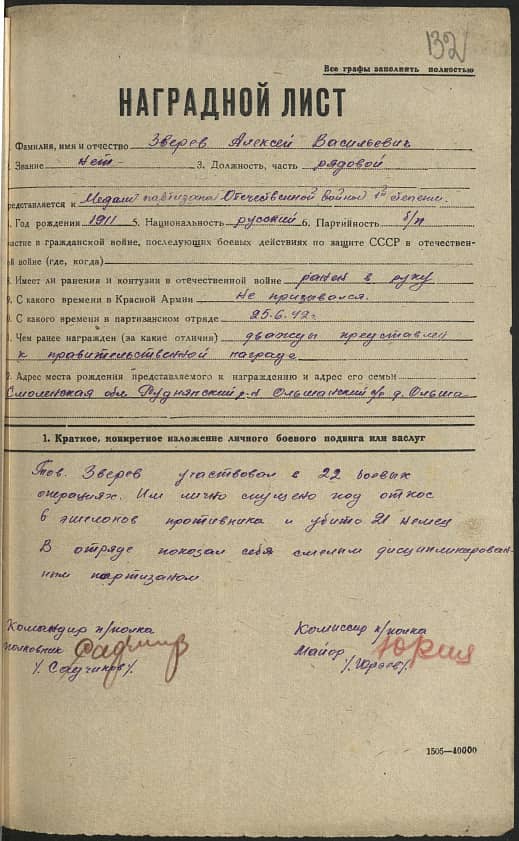 132
Все графы заполнить полностью
НАГРАДНОЙ ЛИСТ
Фамилия, имя и отчество Зверев Алексей Васильевич
2. Звание нет 3. Должность, часть рядовой
редставляется к Медали партизана Отечественной войны 1й степени.
Год рождения 1911 5. Национальность русский 6. Партийность б/п
частие в гражданской войне, последующих боевых действиях по защите СССР в отечествен-
ой войне (где, когда)
8. Имеет ли ранения и контузии в отечественной войне ранен в руку
9. С какого времени в Красной Армии не призывался.
0. С какого времени в партизанском отряде 25.6.42г.
1. Чем ранее награжден (за какие отличия) дважды представлен
к правительственной награде
2. Адрес места рождения представляемого к награждению и адрес его семьи
Смоленская обл Руднянский р-н Ольшанский с/с д. Ольша
1. Краткое, конкретное изложение личного боевого подвига или заслуг
Тов. Зверев участвовал в 22 боевых
операциях. Им лично спущено под откос
6 эшелонов противника и убито 21 немец
В отряде показал себя смелым дисциплинирован-
ным партизаном
Командир п/полка
полковник
/Садчиков/
Комиссар п/полка
Майор
/Юрьев/
1505—40000